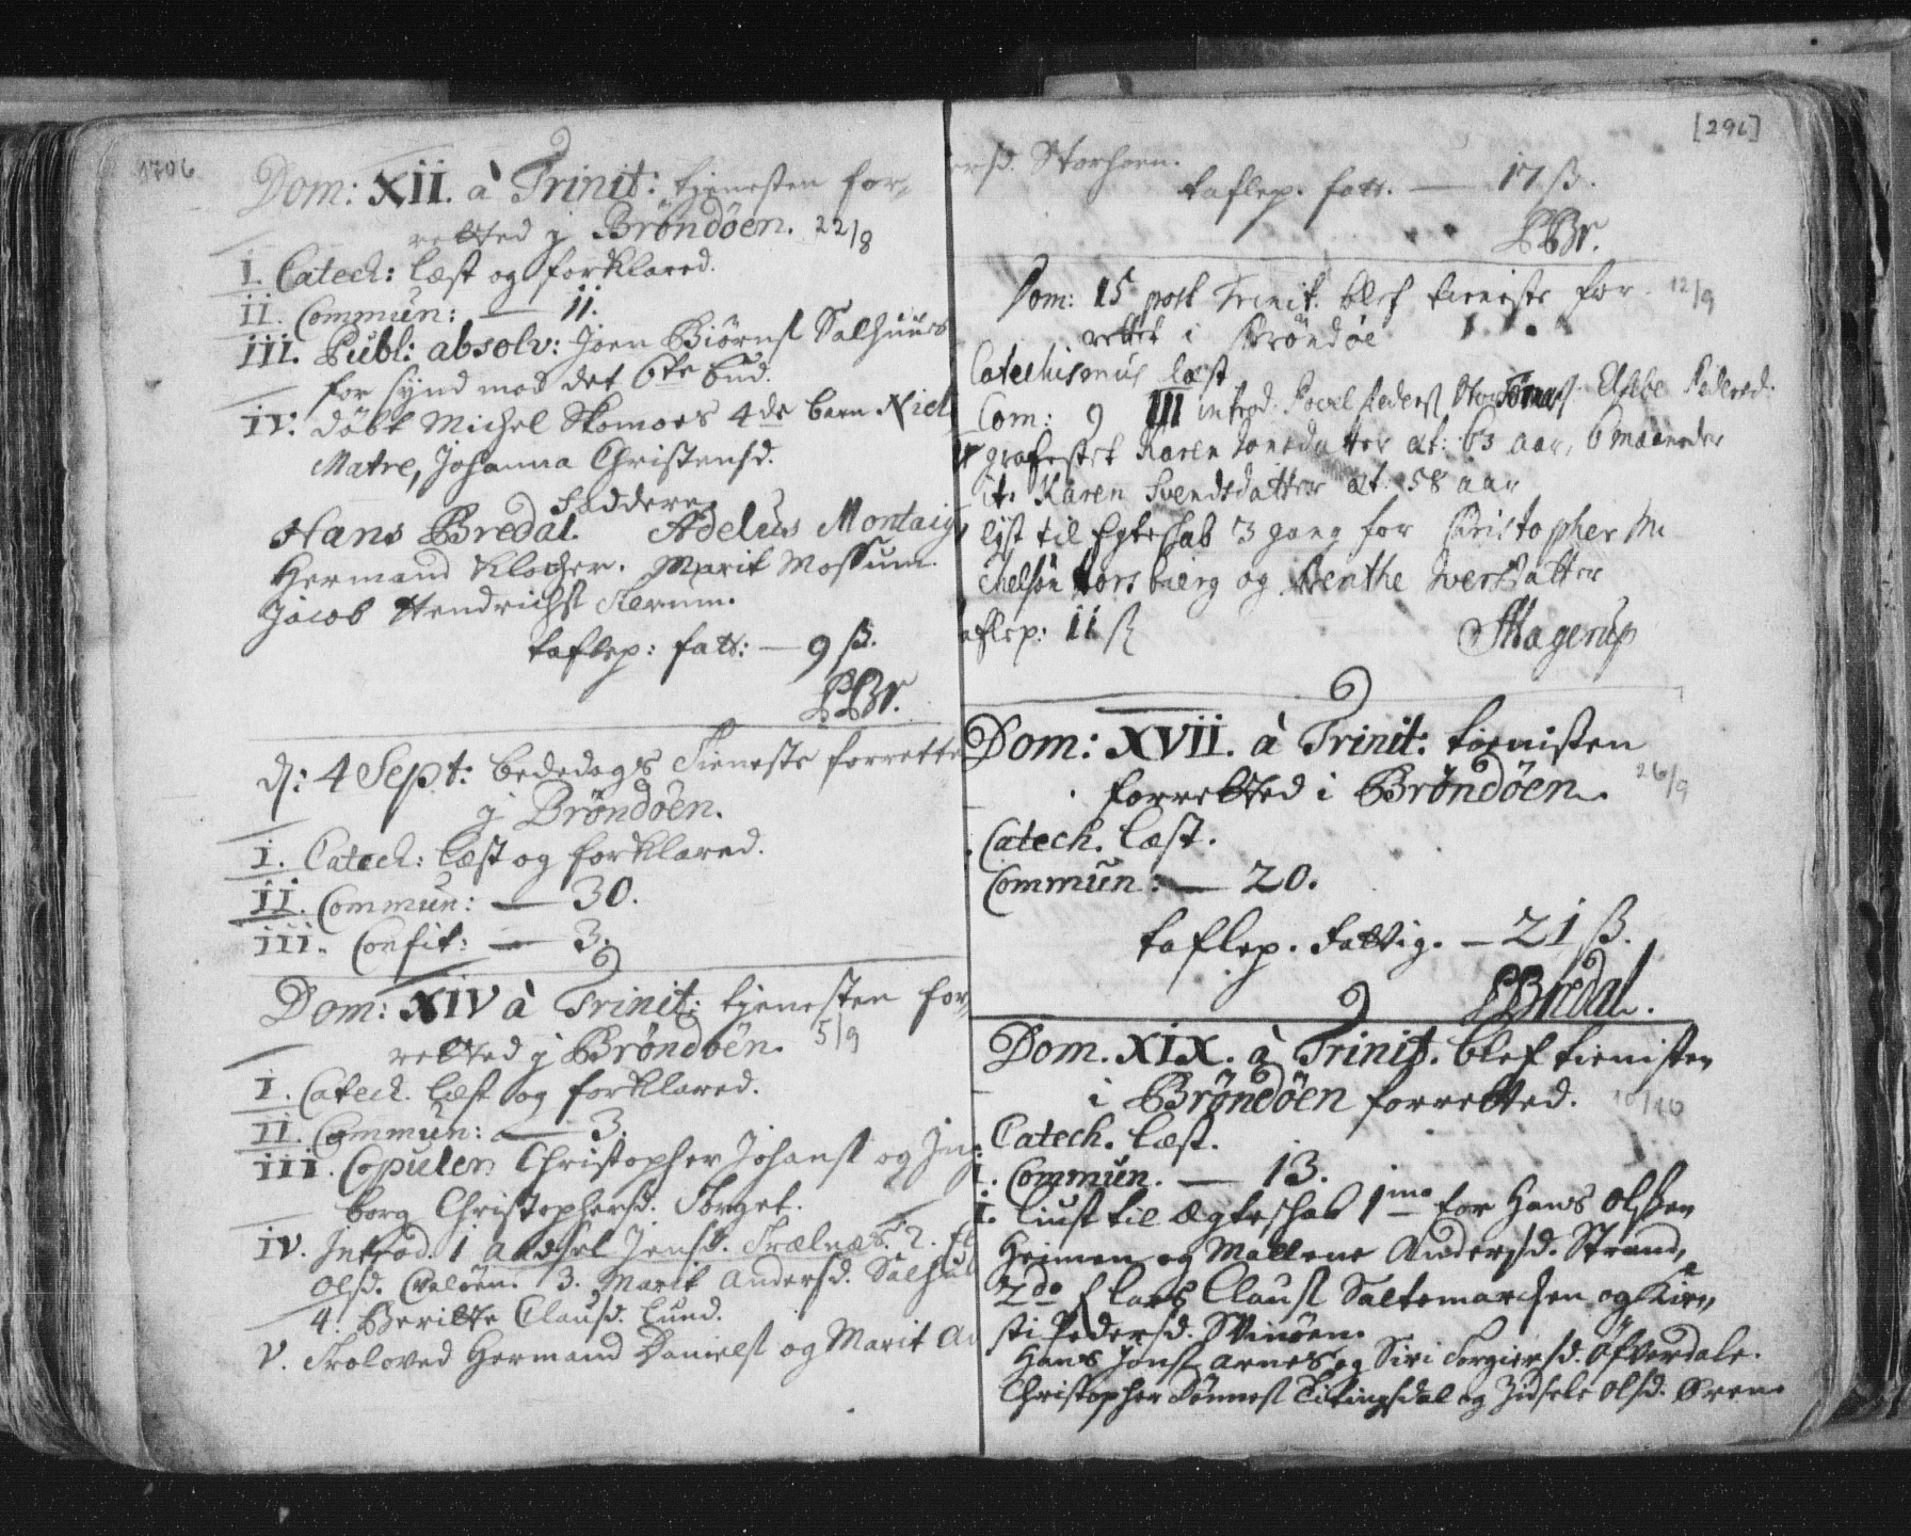 1706
Dom: XII. à Trinit: tjenesten for-
retted j Bröndöen. 22/8
I. Catech: læst og forklared.
II. Commun: — 11.
III. Publ: absolv: Joen Biørns Salhuus
for synd mod det 6te bud.
IV. döbt Michel Skomoers 4de barn Niels
Matre, Johanna Christensd.
Faddere
Hans Bredal. Adelus Montaig
Hermand Klocher. Marit Mossum.
Jacob Hendrichs
taflep: fatt: — 9 ß.
PBr.
d: 4 Sept: bededags Tieneste forrette
j Bröndöen.
I. Catech: læst og forklared.
II. Commun: — 30.
III. Confit: — 3.
Dom: XIV à Trinit: tjenesten for-
retted j Bröndöen. 5/9
I. Catech. læst og forklared.
II. Commun: — 3.
III. Copuler Christopher Johans og Ing
borg Christophersd. Torget.
IV. Introd. 1 Jensd. Trælnæs. 2. El
Olsd. 3. Marit Andersd. Salhus
4. Beritte Clausd. Lund.
V. Troloved Hermand Daniels og Marit An
[296]
ersd. Storhorn.
taflep. fatt. — 17 ß.
PBr.
Dom: 15 post Trinit. blef tieniste for 12/9
rettet i Bröndöe
Catechismus læst
Com: 9 III introd. Povel Peders Ebbe Pedersd.
grafestet Karen Jonsdatter æt: 63 aar, 6 maaneder
it. Karen Svendsdatter æt. 58 aar
list til Egteskab 3 gang for Christopher Mi
chelsön Torsbierg og Benthe Iversdatter
aflep: 11 ß
Hagerup
Dom: XVII. à Trinit: tienisten
forretted i Bröndöen. 26/9
Catech. læst.
Commun: — 20.
taflep. fattig. — 21 ß.
PBredal.
Dom. XIX. à Trinit. blef tienisten
i Bröndöen forretted. 10/10
Catech. læst.
I. Commun. — 13.
I. liust til Ægteschab 1mo for Hans Olssen
Heimen og Mallene Andersd. Strand,
2do Claus Saltomarchen og Kir-
sti Pedersd. Svinöen.
Hans Jons Arnes og Siri Torgiersd. Öfverdale.
Christopher Tønnes og Zidsele Olsd. Øren